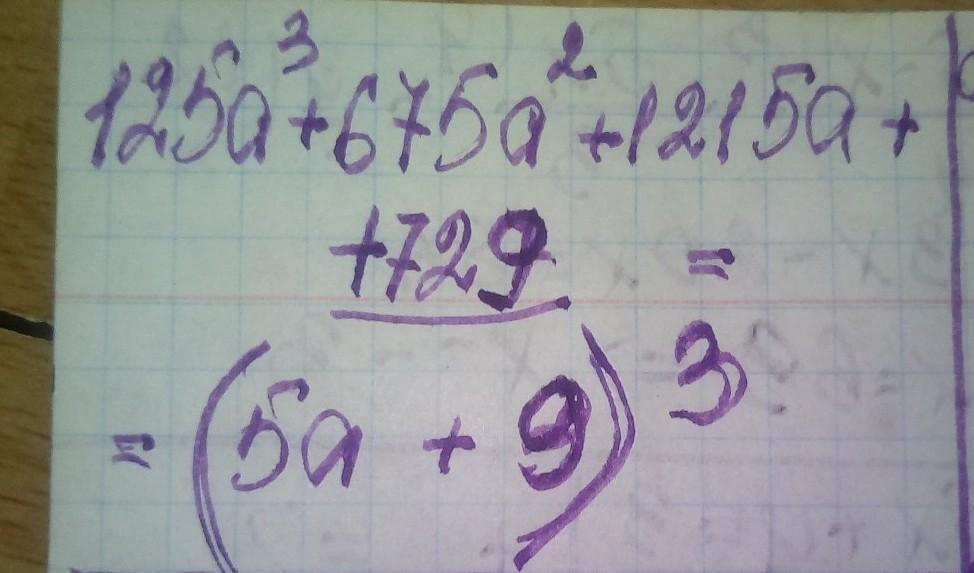 125a³+675a²+1215a+
+729 =
= (5a + 9)³